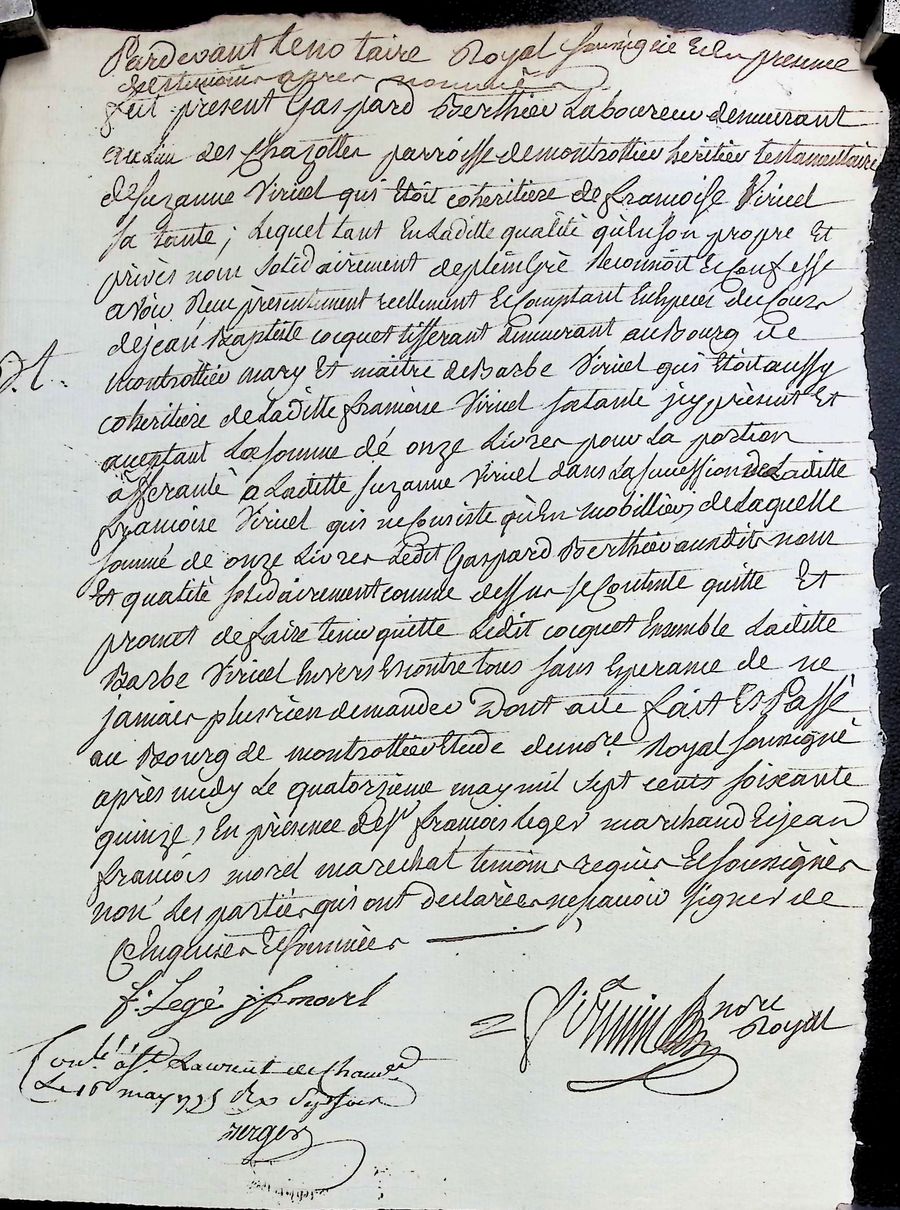 Pardevant le notaire Royal soussigné Et en presence
des temoins apres nommés
fut present Gaspard Berthier Laboureur demeurant
au Lieu des Chazottes parroisse de montrottier heritier testamentaire
de Suzanne Viricel qui Etoit coheritiere de francoise Viricel
sa tante; Lequel tant En Laditte qualité qu'En son propre Et
privés nom solidairement de plein Gré Reconnoit Et Confesse
avoir Reçu présentement reellement Et Comptant En Especes de Cours
de jean Baptiste cocquet tisserant Demeurant au Bourg de
montrottier mary Et maitre de Barbe Viricel qui Etoit aussy
coheritiere de Laditte francoise Viricel sa tante jcy présent Et
acceptant La somme de onze Livres pour La portion
afferante a Laditte Suzanne Viricel dans La succession de Laditte
francoise Viricel qui ne Consiste qu'En mobilliers de Laquelle
somme de onze Livres Ledit Gaspard Berthier ausdits nom
Et qualité solidairement comme dessus se Contente quitte Et
promet de faire tenir quitte Ledit cocquet Ensemble Laditte
Barbe Viricel Envers Et contre tous sans Esperance de ne
jamais plus rien demander Dont acte fait Et Passé
au Bourg de montrottier Etude du nore. Royal soussigné
après midy Le quatorzieme may mil sept cents soixante
quinze, En présence de sr. francois Leger marchand Et jean
francois morel marechal temoins requis Et soussignés
non Les parties qui ont declarées ne savoir signer de
Ce Enquises Et sommées
f. Legé j f morel
nore
Royal
Conlé. à St. Laurent de Chamst
Le 16 may 1775 Rx sept sols